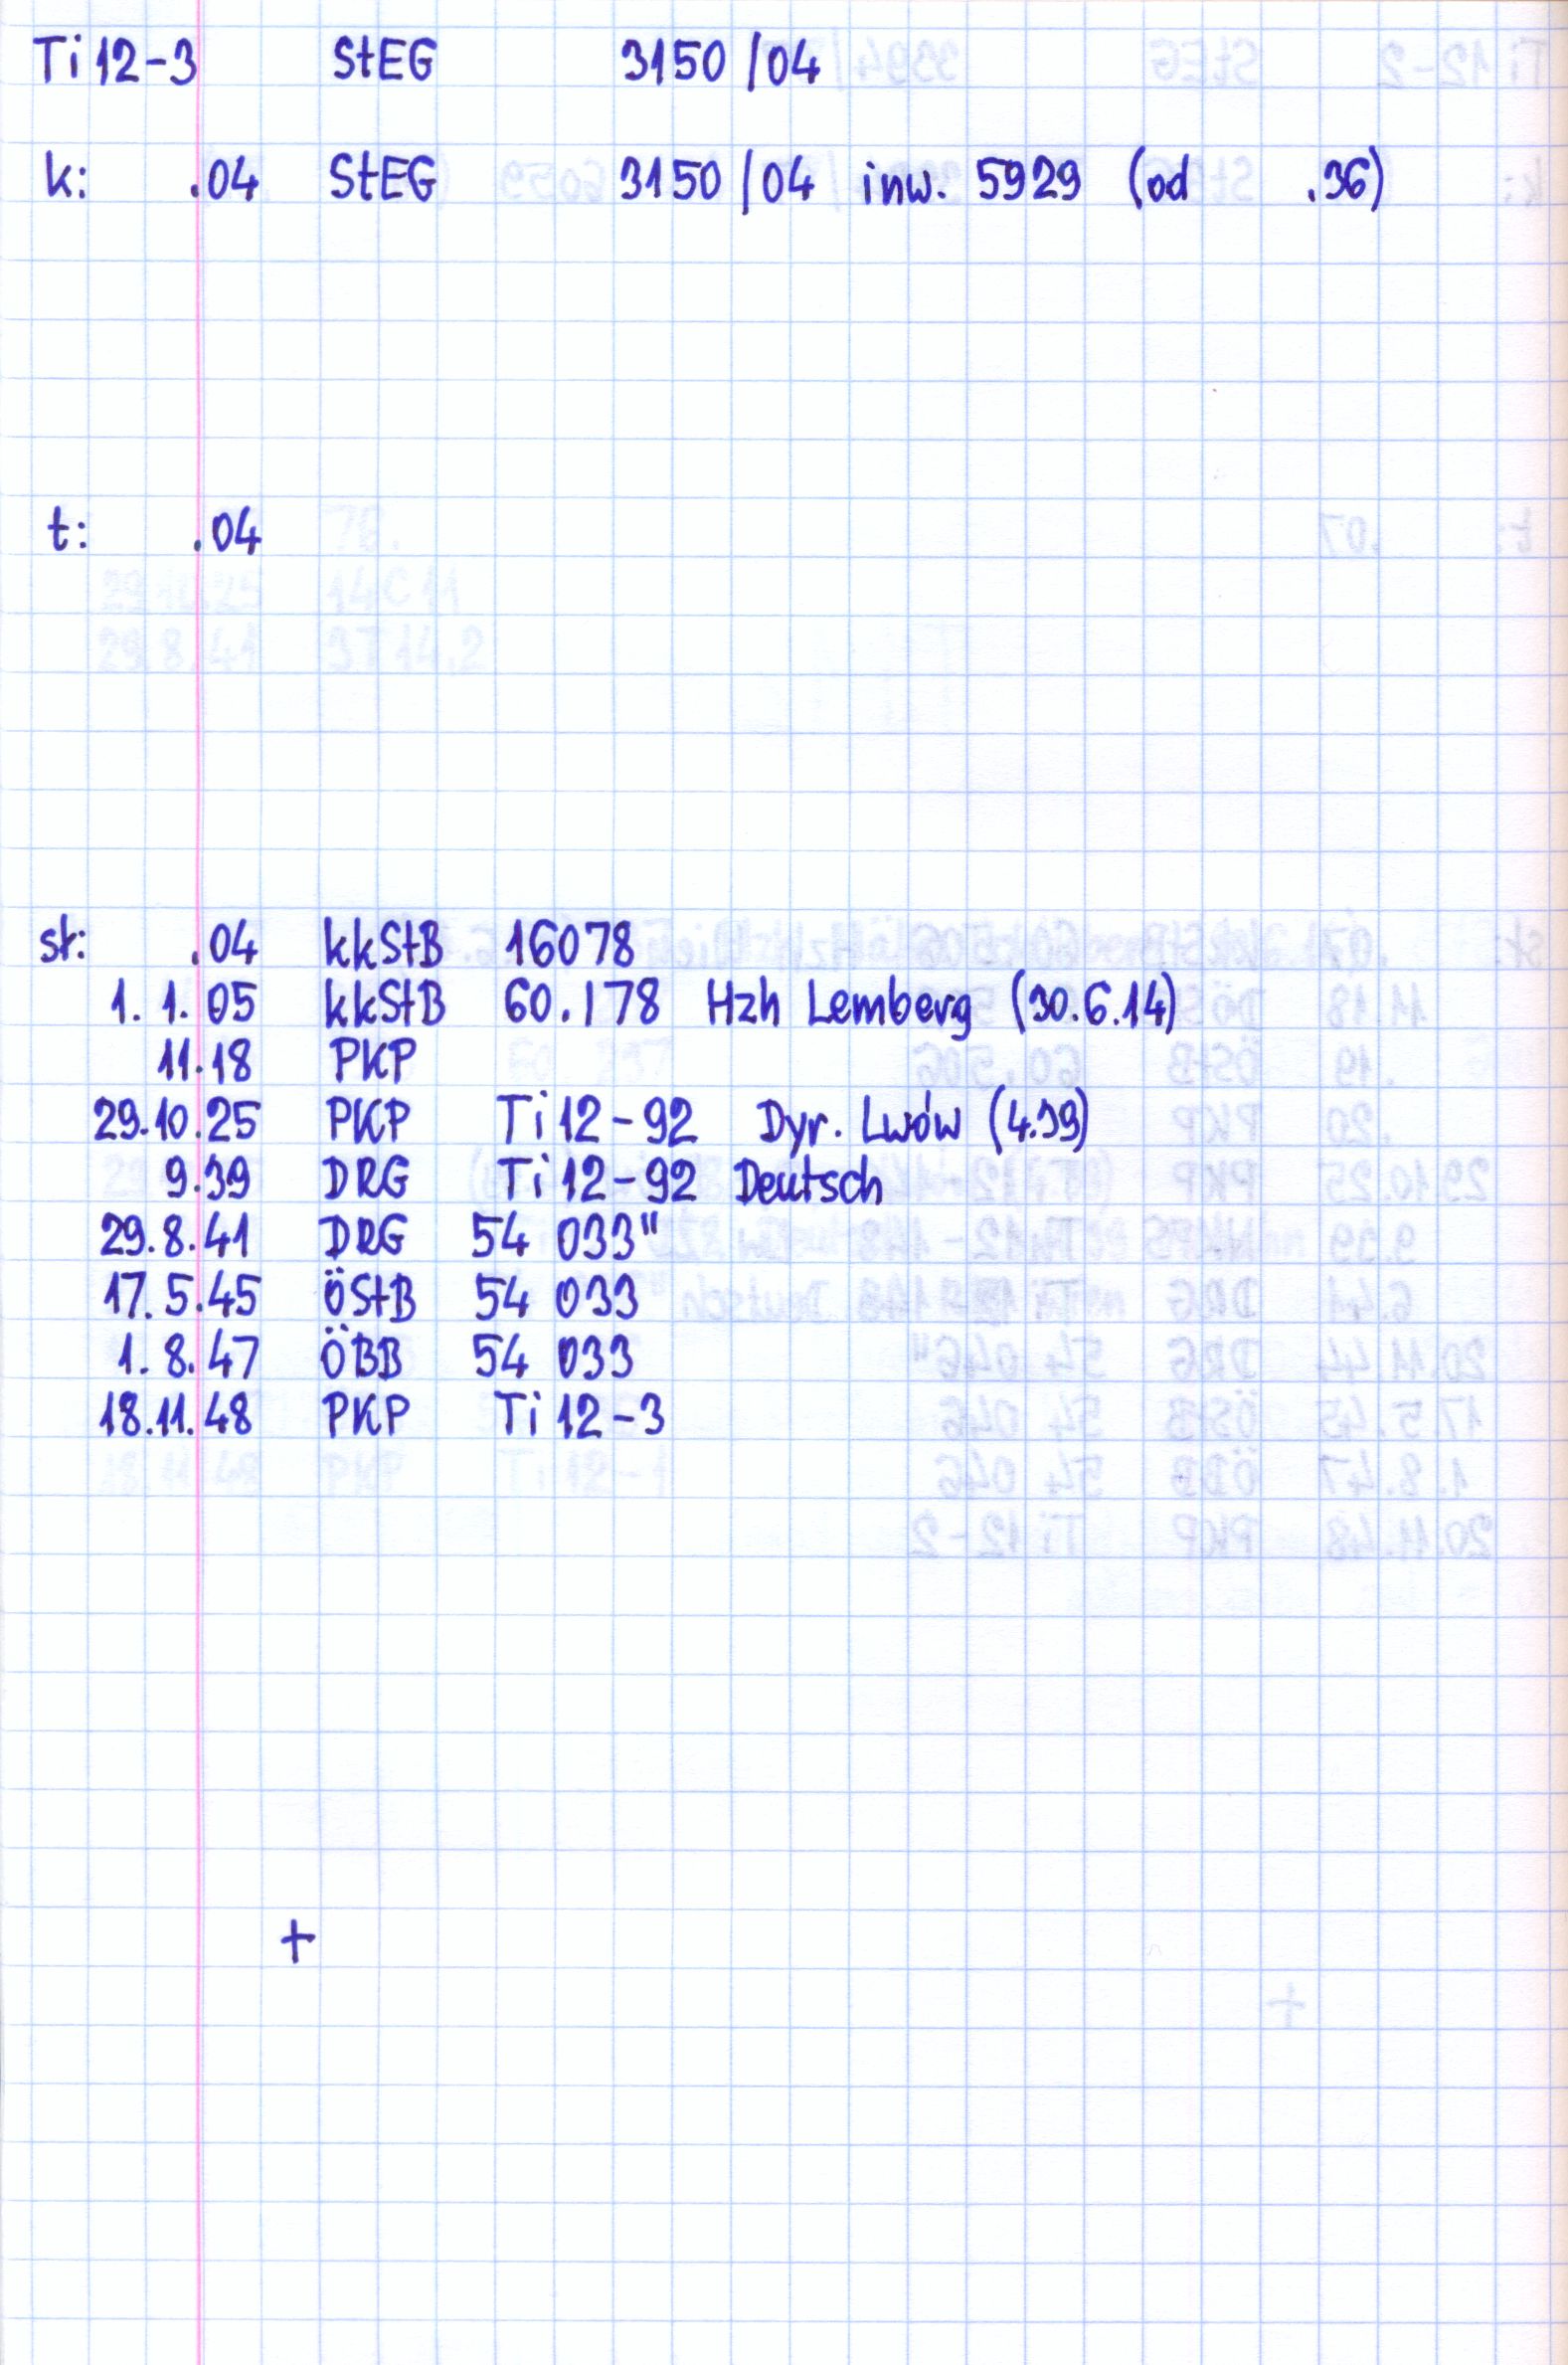 Ti 12-3 StEG 3150/04
k: .04 StEG 3150/04 inw. 5929 (od .36)
t: .04
st: .04 kkStB 16078
1. 1. 05 kkStB 60.178 Hzh Lemberg (30.6.14)
11.18 PKP
29.10.25 PKP Ti 12-92 Dyr. Lwów (4.39)
9.39 DRG Ti 12-92 Deutsch
29.8.41 DRG 54 033"
17.5.45 ÖStB 54 033
1.8.47 ÖBB 54 033
18.11.48 PKP Ti 12-3
+